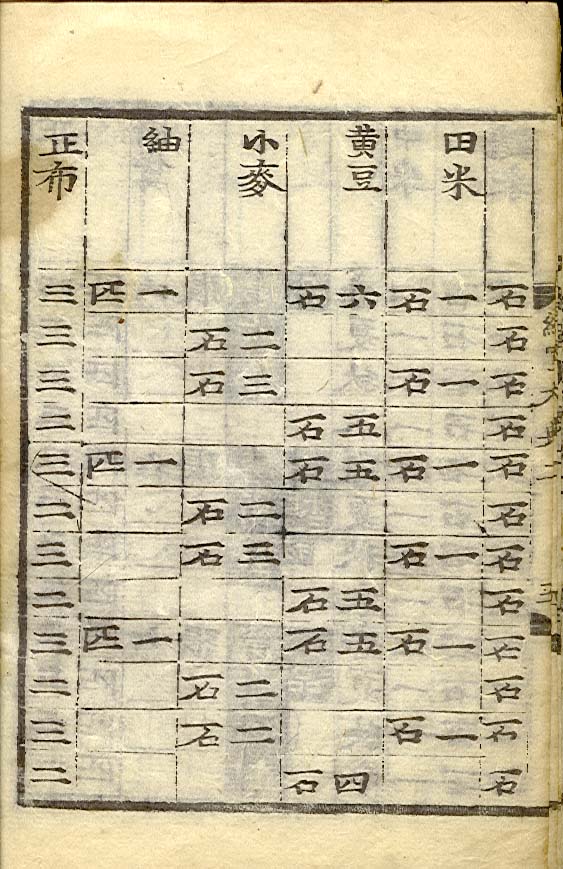 田米 黄豆 小麥 紬 正布
石 一石 六石 一匹 三
石 二石 三
石 一石 三石 三
石 五石 二
石 一石 五石 一匹 三
石 二石 二
石 一石 三石 三
石 五石 二
石 一石 五石 一匹 三
石 二石 二
石 一石 二石 三
石 四石 二
經國大典二